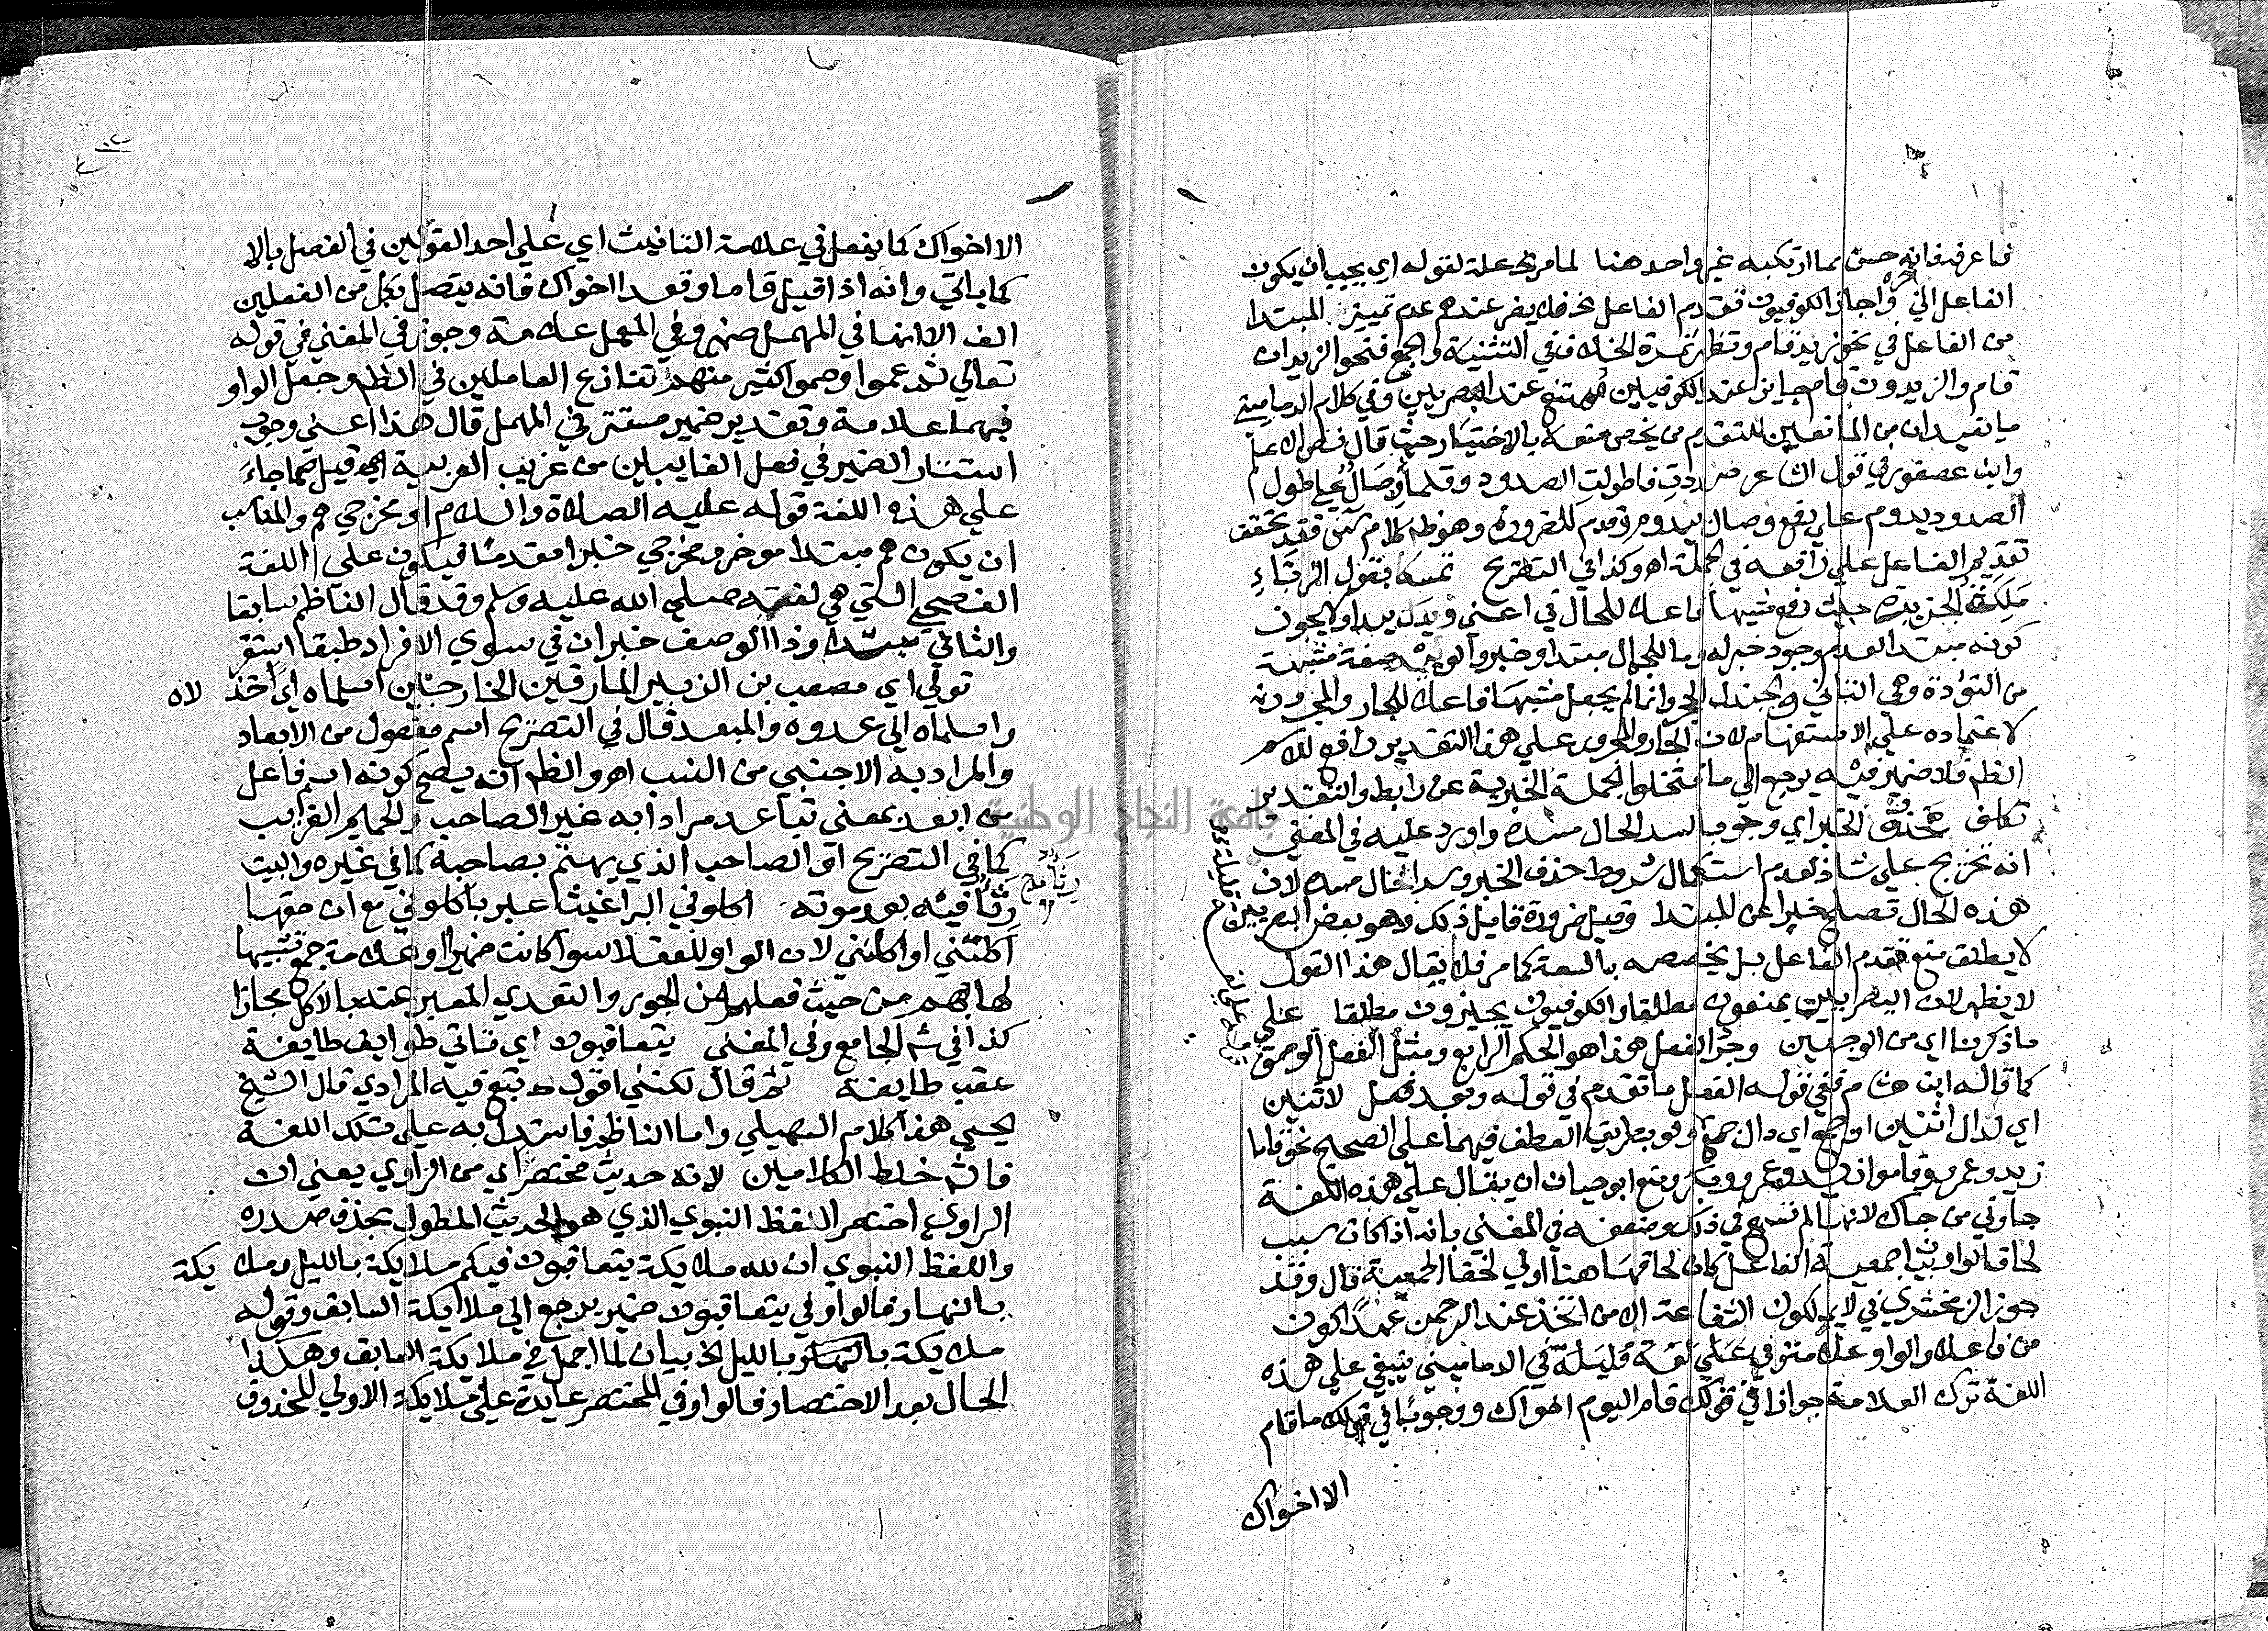 فاعرفه فانه حسن مما ارتكبه غير واحد هنا لما مر علة لقوله اي يجيب ان يكون
الفاعل الخ واجاز الكوفيون تقدم الفاعل فلا يضر عندهم عدم تمييز المبتدا
من الفاعل في نحو زيد قام وتظهر ثمرة الخلاف في التثنية والجمع فنحو الزيدان
قام والزيدون قام جايز عند الكوفيين ممتنع عند البصريين وفي كلام الدماميني
ما يفيد ان من المانعين للتقدم من يخص منعه بالاختيار حيث قال فنص الاعلم
وابن عصفور في قول الشاعر صددت فاطولت الصدود وقلما وصال علي طول
الصدود يدوم علي رفع وصال بيدوم وقدم للضرورة وهو ظ كلام س فقد تحقق
تقديم الفاعل علي رافعه في الجملة اهـ وكذا في التصريح تمسكا بقول الزباء
كونه مبتدا لعدم وجود خبر له وما للجمال مبتدا وخبر والوئيد صفة مشبهة
من التؤدة وهي التاني والجندل الحجر وانما لم يجعل مشيها فاعلا للجار والمجرور
لاعتماده علي الاستفهام لان الجار والمجرور علي هذا التقدير رافع للاسم
الظ فلا ضمير فيه يرجع الي ما فتخلوا الجملة الخبرية عن رابط والتقدير
تكلف حذف الخبر اي وجوبا لسد الحال مسده واورد عليه في المغني
انه تخريج علي شاذ لعدم استكمال شروط حذف الخبر وسد الحال مسده لان
هذه الحال تصلح خبرا عن المبتدا وقيل ضرورة قايل ذلك هو بعض البصريين
لا يطلق منع تقدم الفاعل بل يخصصه بالسعة كما مر فلا يقال هذا القول
لا يظهر لان البصريين يمنعون مطلقا والكوفيون يجيزون مطلقا علي
ما ذكرنا اي من الوجهين وجرد الفعل هذا هو الحكم الرابع ومثل الفعل الوصف
كما قاله ابن هشام في قوله الفعل ما تقدم في قوله وبعد فعل لاثنين
اي لدال اثنين او جمع اي دال جمع ولو بطريق العطف فيهما علي الصحيح نحو قاما
زيد وعمرو وقاموا زيد وعمرو وبكر ومنع ابو حيان ان يقال علي هذه اللغة
جاوني من جاك لانها لم تسمع في ذلك وضعفه في المغني بانه اذا كان سبب
لحاق الواو بيان جمعية الفاعل كان لحاقها هنا اولي لخفا الجمعية قال وقد
جوز الزمخشري في لا يملكون الشفاعة الا من اتخذ عند الرحمن عهدا كون
من فاعلا والواو علامة علي لغة قليلة في الدماميني ينبغي علي هذه
اللغة ترك العلامة جوازا في قولك قام اليوم اخواك ووجوبا في قولك ما قام
الا اخواك
الا اخواك كما يفعل في علامة التانيث اي علي احد القولين في الفصل بالا
كما ياتي وانه اذا قيل قاما وقعدا اخواك فانه يتصل بكل من الفعلين
الف الا انها في المهمل ضمير وفي المعمل علامة وجوز في المغني في قوله
تعالي ثم عموا وصموا كثير منهم تنازع العاملين في الظ وجعل الواو
فيهما علامة وتقدير ضمير مستتر في المهمل قال هذا اعني وجوب
استتار الضمير في فعل الغايبين من غريب العربية اهـ قيل مما جاء
علي هذه اللغة قوله عليه الصلاة والسلام او مخرجي هم والمناسب
ان يكون هم مبتدا موخر ومخرجي خبرا مقدما فيكون علي اللغة
الفصحي التي هي لغته صلي الله عليه وسلم وقد قال الناظم سابقا
والثاني مبتدا وذا الوصف خبر ان في سوي الافراد طبقا استقر
تولي اي مصعب بن الزبير المارقين الخارجين اسلماه اي خذلاه
واسلماه الي عدوه والمبعد قال في التصريح اسم مفعول من الابعاد
والمراد به الاجنبي من النسب اهـ والظ انه يصح كونه اسم فاعل
من ابعد بمعني تباعد مرادا به غير الصاحب والحميم القريب
كما في التصريح او الصاحب الذي يهتم بصاحبه كما في غيره والبيت
رثا فيه بعد موته اكلوني البراغيث عبر باكلوني مع ان حقها
اكلتني او اكلنني لان الواو للعقلا سوا كانت ضميرا او علامة جمع تشبيها
لها بهم من حيث فعلهم من الجور والتعدي المعبر عنه بالاكل مجازا
كذا في ش الجامع وفي المغني يتعاقبون اي تاتي طوايف طايفة
عقب طايفة ثم قال لكنني اقول تبع فيه المرادي قال الشيخ
يحيي هذا كلام السهيلي واما الناظم فاستدل به علي تلك اللغة
فالش خلط الكلامين لانه حديث مختصر اي من الراوي يعني ان
الراوي اختصر اللفظ النبوي الذي هو الحديث المطول بحذف صدره
واللفظ النبوي ان لله ملايكة يتعاقبون فيكم ملايكة بالليل وملايكة
بالنهار فالواو في يتعاقبون ضمير يرجع الي ملايكة السابق وقوله
ملايكة بالنهار بالليل الخ بيان لما اجمل في ملايكة السابق وهكذا
الحال بعد الاختصار فالواو في المختصر عايدة علي ملايكة الاولي المحذوف
جامعة النجاح الوطنية